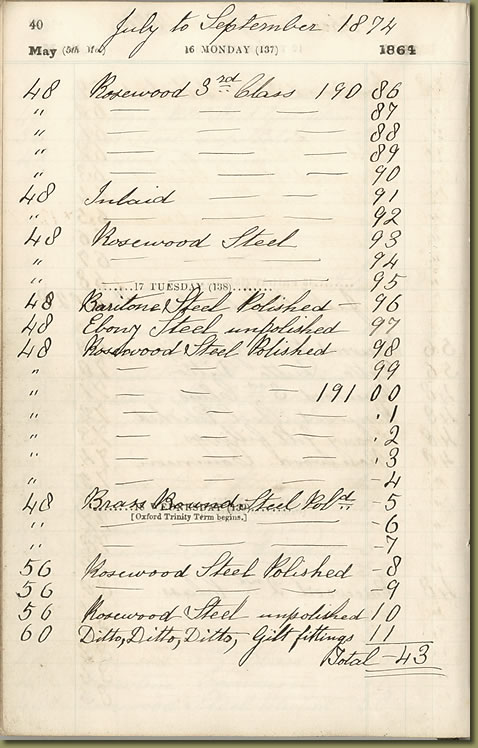 40 July to September 1874
May (5th Mo.) 16 MONDAY (137) 1864
48 Rosewood 3rd Class 190 86
" — — — 87
" — — — 88
" — — — 89
" — — — 90
48 Inlaid — — 91
" — — — 92
48 Rosewood Steel 93
" — — — 94
" — — — 95
17 TUESDAY (138)
48 Baritone Steel Polished — 96
48 Ebony Steel unpolished 97
48 Rosewood Steel Polished 98
" — — — 99
" — — — 191 00
" — — — .1
" — — — .2
" — — — .3
" — — — -4
48 Brass Bound Steel Pold -5
18 WEDNESDAY (139)
[Oxford Trinity Term begins.]
" — — — -6
" — — — -7
56 Rosewood Steel Polished -8
56 — — — -9
56 Rosewood Steel unpolished 10
60 Ditto, Ditto, Ditto, Gilt fittings 11
Total -43